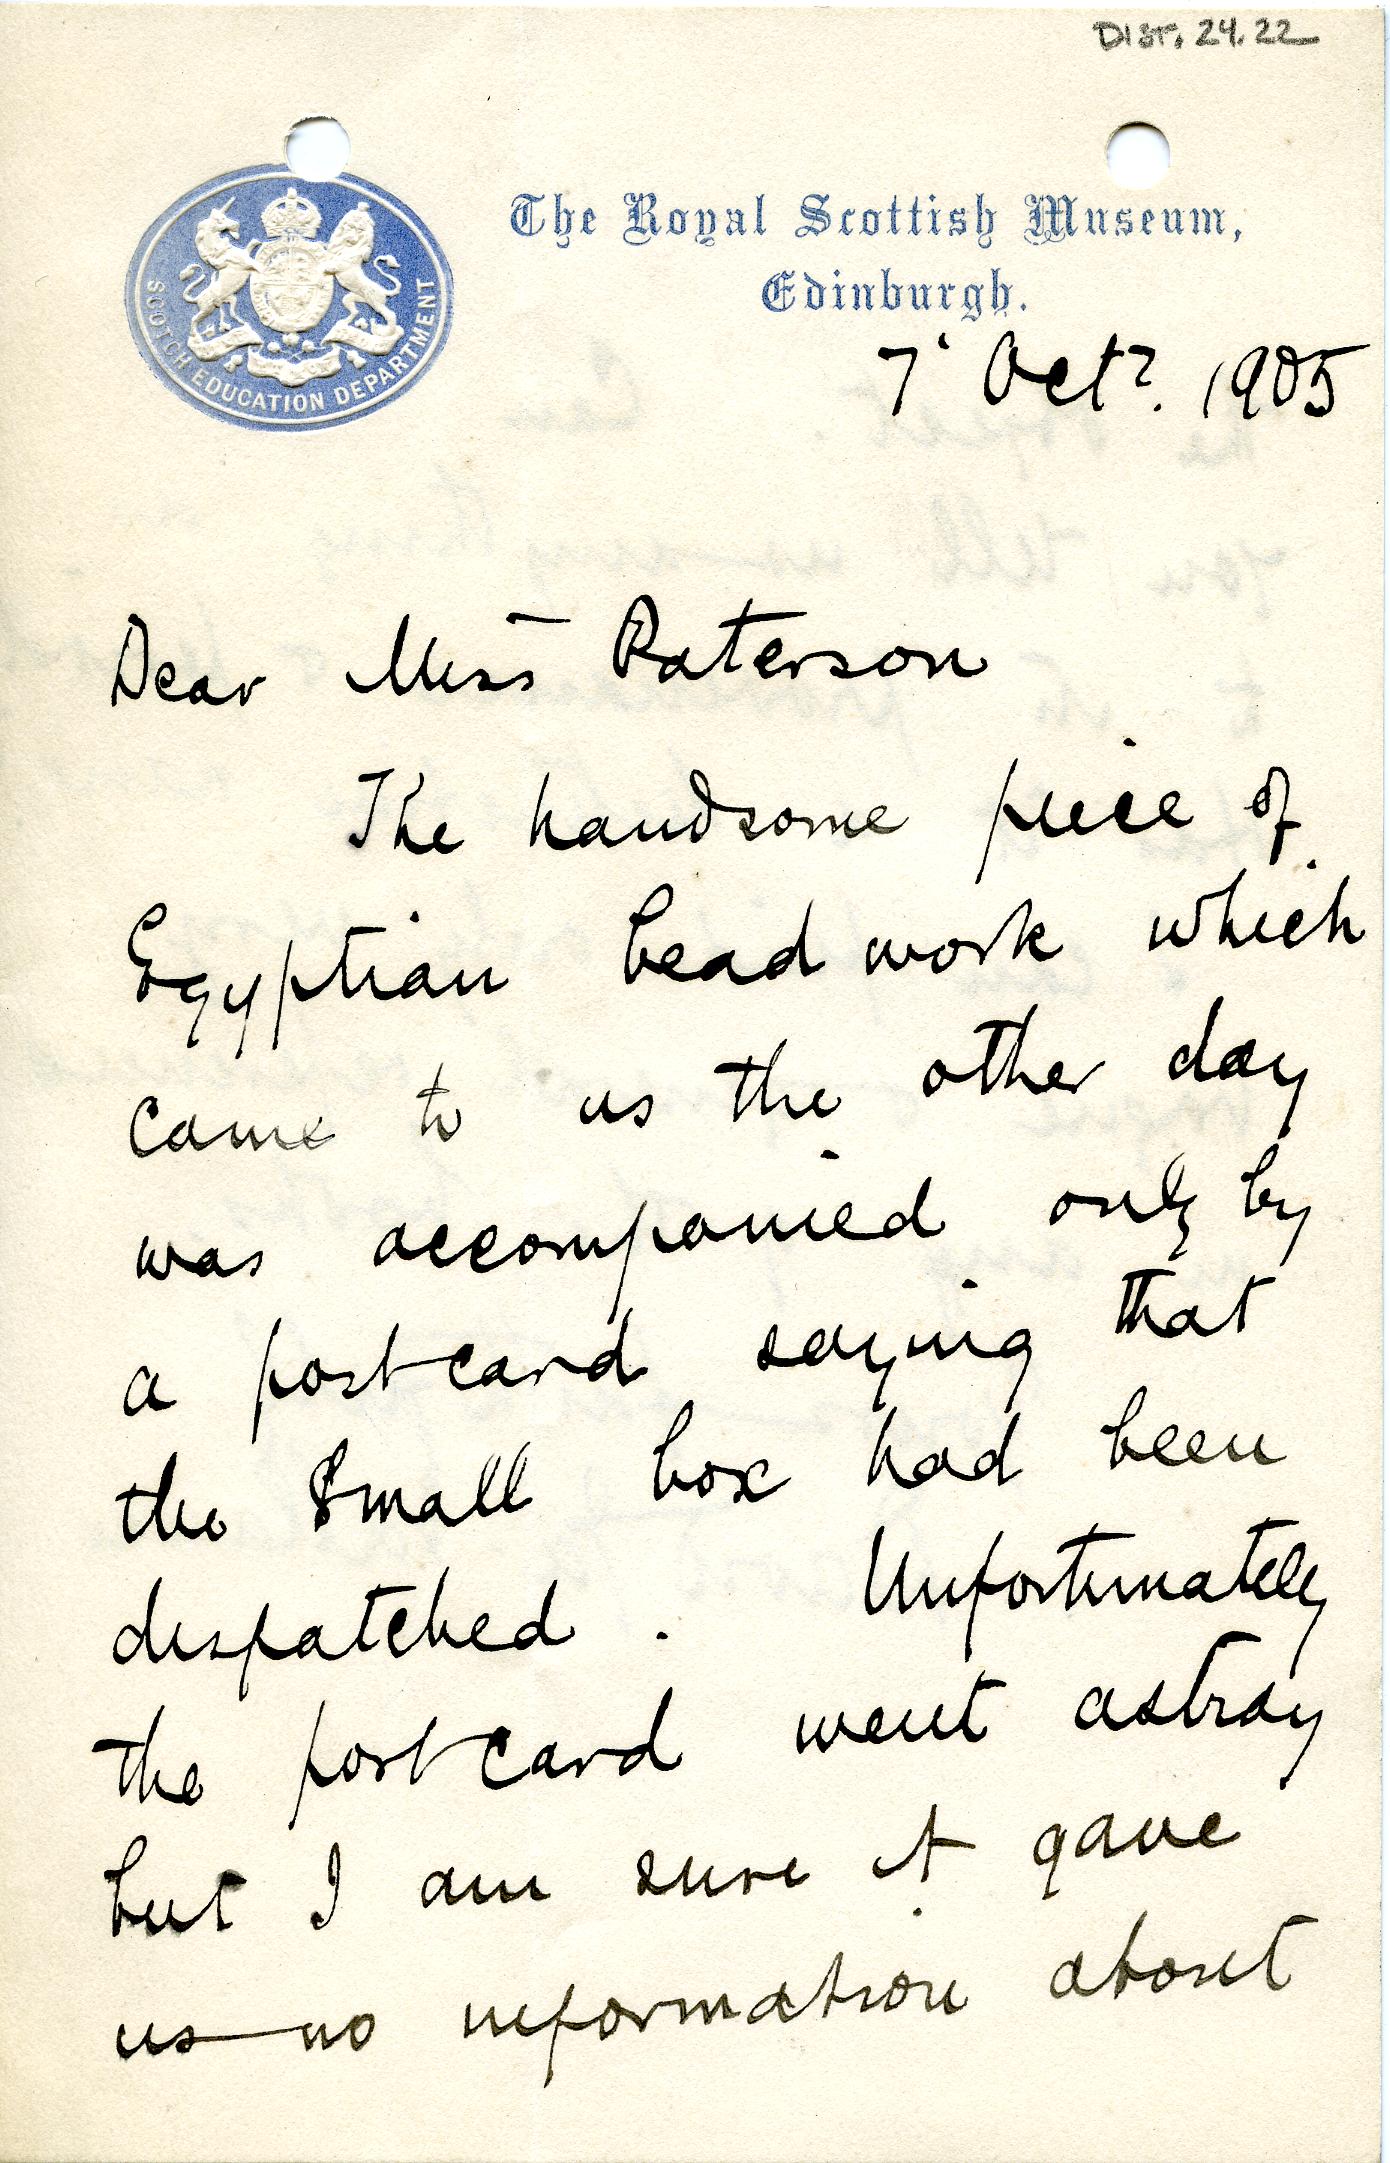 DIST. 24.22
SCOTCH EDUCATION DEPARTMENT
The Royal Scottish Museum,
Edinburgh.
7 Octr. 1905
Dear Miss Paterson
The handsome piece of
Egyptian bead work which
came to us the other day
was accompanied only by
a postcard saying that
the small box had been
dispatched. Unfortunately
the postcard went astray
but I am sure it gave
us no information about